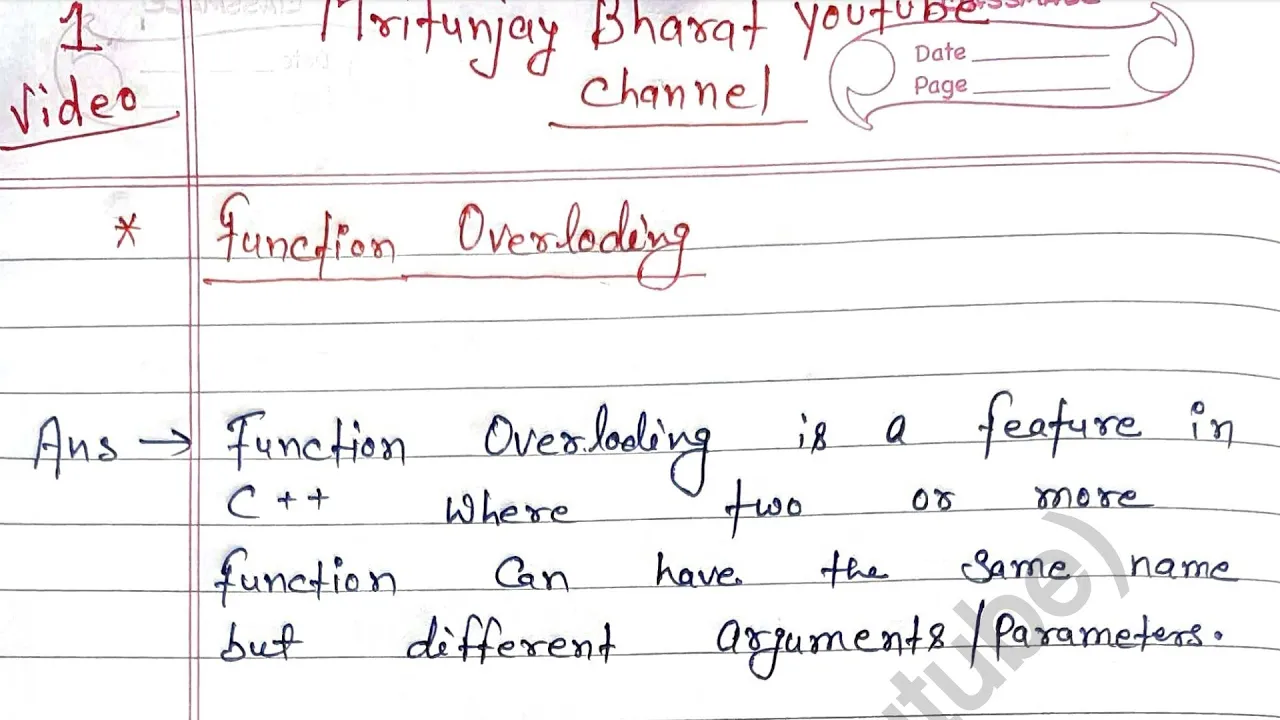 1
Video
Mritunjay Bharat youtube
channel
Date
Page
* Function Overloding
Ans → Function Overloding is a feature in
C++ where two or more
function can have the same name
but different arguments/Parameters.
tube)